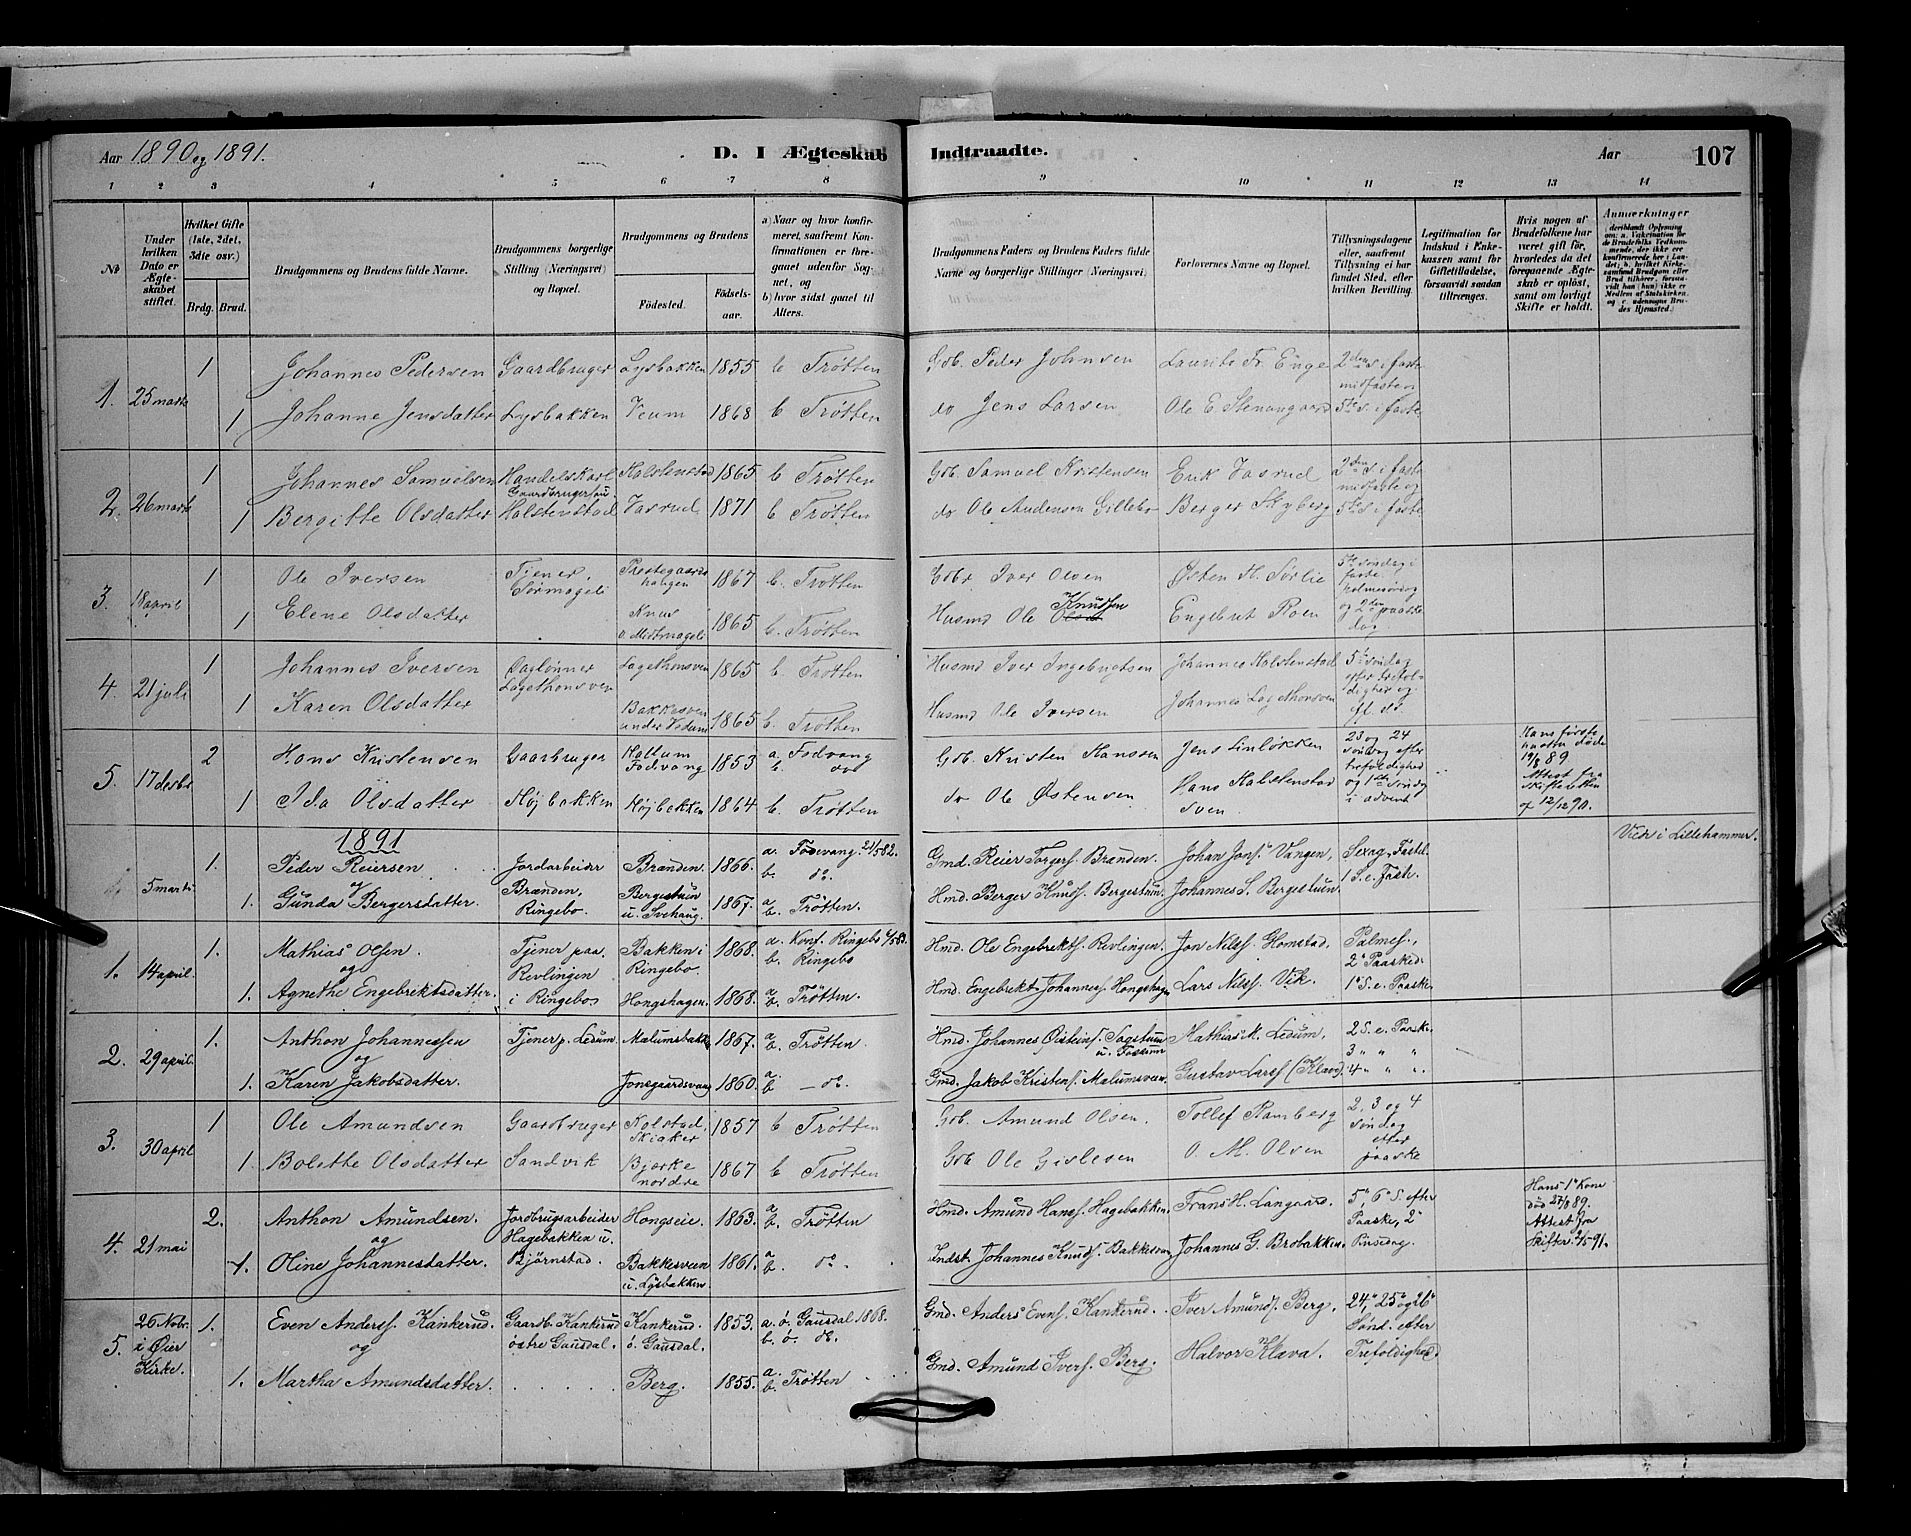 Aar 1890 og 1891.
D. I Ægteskab Indtraadte.
Aar
107
1 2 3 4 5 6 7 8 9 10 11 12 13 14
No
Under hvilken Dato er Ægteskabet stiftet.
Hvilket Gifte (1ste, 2det, 3die osv.)
Brdg. Brud.
Brudgommens og Brudens fulde Navne.
Brudgommens borgerlige Stilling (Næringsvei) og Bopæl.
Brudgommens og Brudens
Födested.
Födselsaar.
a) Naar og hvor konfirmeret, saafremt Konfirmationen er foregaaet udenfor Sognet, og
b) hvor sidst gaaet til Alters.
Brudgommens Faders og Brudens Faders fulde Navne og borgerlige Stillinger (Næringsvei).
Forlovernes Navne og Bopæl.
Tillysningsdagene eller, saafremt Tillysning ei har fundet Sted, efter hvilken Bevilling.
Legitimation for Indskud i Enkekassen samt for Giftetilladelse, forsaavidt saadan tiltrænges.
Hvis nogen af Brudefolkene har været gift før, hvorledes da det foregaaende Ægteskab er opløst, samt om lovligt Skifte er holdt.
Anmærkninger
1. 25 marts 1 Johannes Pedersen Gaardbruger Lysbakken 1855 b Trötten Gdb. Peder Johnsen Laurits Fr. Enge 2den s. i faste
midfasten
1 Johanne Jensdatter Lysbakken Veum 1868 b Trötten do Jens Larsen Ole E. Stenangaard 5te s. i faste
2. 26 marts 1 Johannes Samuelsen Handelskarl Halstenstad 1865 b Trötten Gdb Samuel Kristensen Erik Vasrud 2den s i faste
Gaardbrugersøn midfaste og
1 Bergitte Olsdatter Halstenstad Vasrud 1871 b Trötten do Ole Audensen Gillebo Berger Skyberg 5te s. i faste
3. 18 april 1 Ole Iversen Tjener, Sörmageli Prestegaardshaugen 1867 b. Trötten Gdbr Iver Olsen Østen H. Sørlie 5te söndag i
faste
1 Elene Olsdatter o Midtmageli 1865 b. Trötten Husmd Ole Knudsen Engebret Roen palmesöndag
og 2den paaske
dag
4. 21 juli 1 Johannes Iversen Daglønner Lagethonsven 1865 b Trötten Husmd Iver Ingebrigtsen Johannes Halstenstad 5te söndag
Lagethonsven efter trefol-
dighed og
1 Karen Olsdatter Bakkesven under Vedum 1865 b. Trötten Husmd Ole Iversen Johannes Lagethonsven
5. 17 desbr 2 Hans Kristensen Gaarbruger Holtum Fodvang 1853 a. Fodvang b. do Gdb Kristen Hanssen Jens Linløkken 23 og 24 söndag efter trefoldighed Hans første hustru døde 19/8 89
1 Ida Olsdatter Højbakken Højbakken 1864 b. Trötten do Ole Østensen Hans Halstenstadsven og 1ste söndag i advent Attest fra skifteretten af 12/12 90.
1891
5 marts 1. Peder Reiersen Jordarbeider Brænden 1866. a. Fodvang 21/5 82. b. do. Gmd. Reier Torgers. Brænden. Johan Jons. Vangen, Sexag. Fastel. Viede i Lillehammer.
og
1. Gunda Bergersdatter. Brænden, Ringebo. Bergestuen u. Svehaug. 1867. a. b. Trötten. Hmd. Berger Knuds. Bergestuen. Johannes S. Bergestuen. 1 S. e. Fast.
1. 14 april. 1. Mathias Olsen. Tjener paa Revlingen Bakken i Ringebo. 1868. a. Konf. Ringebo b. Ringebo Hmd. Ole Engebrekts. Revlingen. Jon Nils. Glomstad. Palmes.,
og 2" Paasked.
1. Agnethe Engebrektsdatter. i Ringebo Hongshagen. 1868. a. b. Trötten. Hmd. Engebrekt Johannes. Hongshagen Lars Nils. Vik. 1" S. e. Paaske.
2. 29 april. 1. Anthon Johannessen Tjener p. Ledum. Mælumsbakk. 1867. a. b. Trötten. Hmd. Johannes Øisteins. Sagstuen u. Fossum Mathias M. Ledum. 2 S. e. Paaske.
og 3 " " "
1. Karen Jakobsdatter. Jonsgaardsvang 1860. a. b. do. Gmd. Jakob Kristens. Mælumsveen. Gustav Lars. (Klava). 4 " " ".
3. 30 april 1 Ole Amundsen Gaardbruger Kolstad, Skiaker 1857 b Trötten Gdb. Amund Olsen Tollef Ramberg 2, 3 og 4
söndag
1. Bolette Olsdatter Sandvik Bjerke nordre 1867 b Trötten Gdb Ole Gislesen O. M. Olsen efter
paaske
4. 21 mai 2. Anthon Amundsen. Jordbrugsarbeider Hongseie. 1863. a. b. Trötten Hmd. Amund Hans. Hagebakken. Frans H. Langaard. 5", 6" S. efter Paaske, 2" Hans 1" Kone død 27/8 89.
og Hagebakken u. Attest fra
1. Oline Johannesdatter. Bjørnstad. Bakkesveen u. Lysbakken 1861. a. b. do. Indst. Johannes Knuds. Bakkesveen Johannes G. Brobakken. Pinsedag. Skifter. 2/5 91.
5. 26 Novbr. i Øier Kirke. 1. Even Anders. Kankerud. Gaardb. Kankerud østre Gausdal. Kankerud. ø. Gausdal. 1853. a. ø. Gausdal 1868. b. ø. do. Gmd. Anders Evens. Kankerud. Iver Amunds. Berg. 24", 25" og 26"
og Sønd. efter
1. Martha Amundsdatter. Berg. 1855. a. b. Trötten Gmd. Amund Ivers. Berg. Halvor Klava. Trefoldighed.